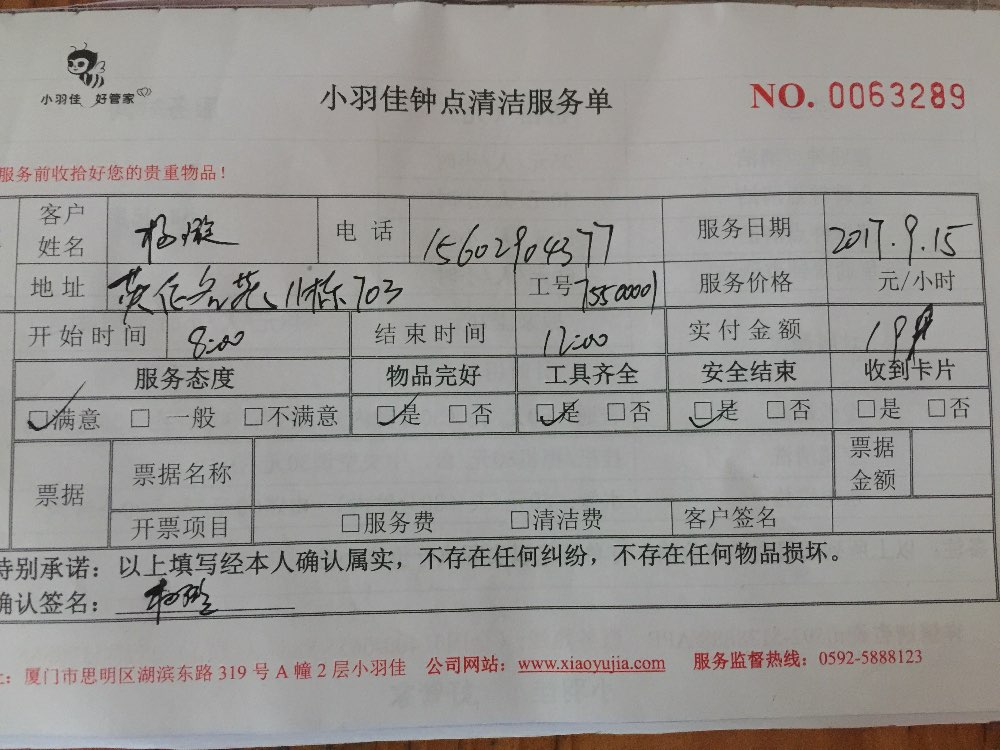 小羽佳 好管家
小羽佳钟点清洁服务单
NO. 0063289
服务前收拾好您的贵重物品！
客户姓名 杨璇 电话 15602904377 服务日期 2017.9.15
地址 名苑 11栋703 工号 75500001 服务价格 元/小时
开始时间 8:00 结束时间 12:00 实付金额
服务态度 物品完好 工具齐全 安全结束 收到卡片
☑满意 □ 一般 □不满意 ☑是 □否 ☑是 □否 ☑是 □否 □是 □否
票据 票据名称 票据金额
开票项目 □服务费 □清洁费 客户签名
特别承诺：以上填写经本人确认属实，不存在任何纠纷，不存在任何物品损坏。
确认签名： 杨璇
：厦门市思明区湖滨东路 319 号 A 幢 2 层小羽佳 公司网站：www.xiaoyujia.com 服务监督热线：0592-5888123